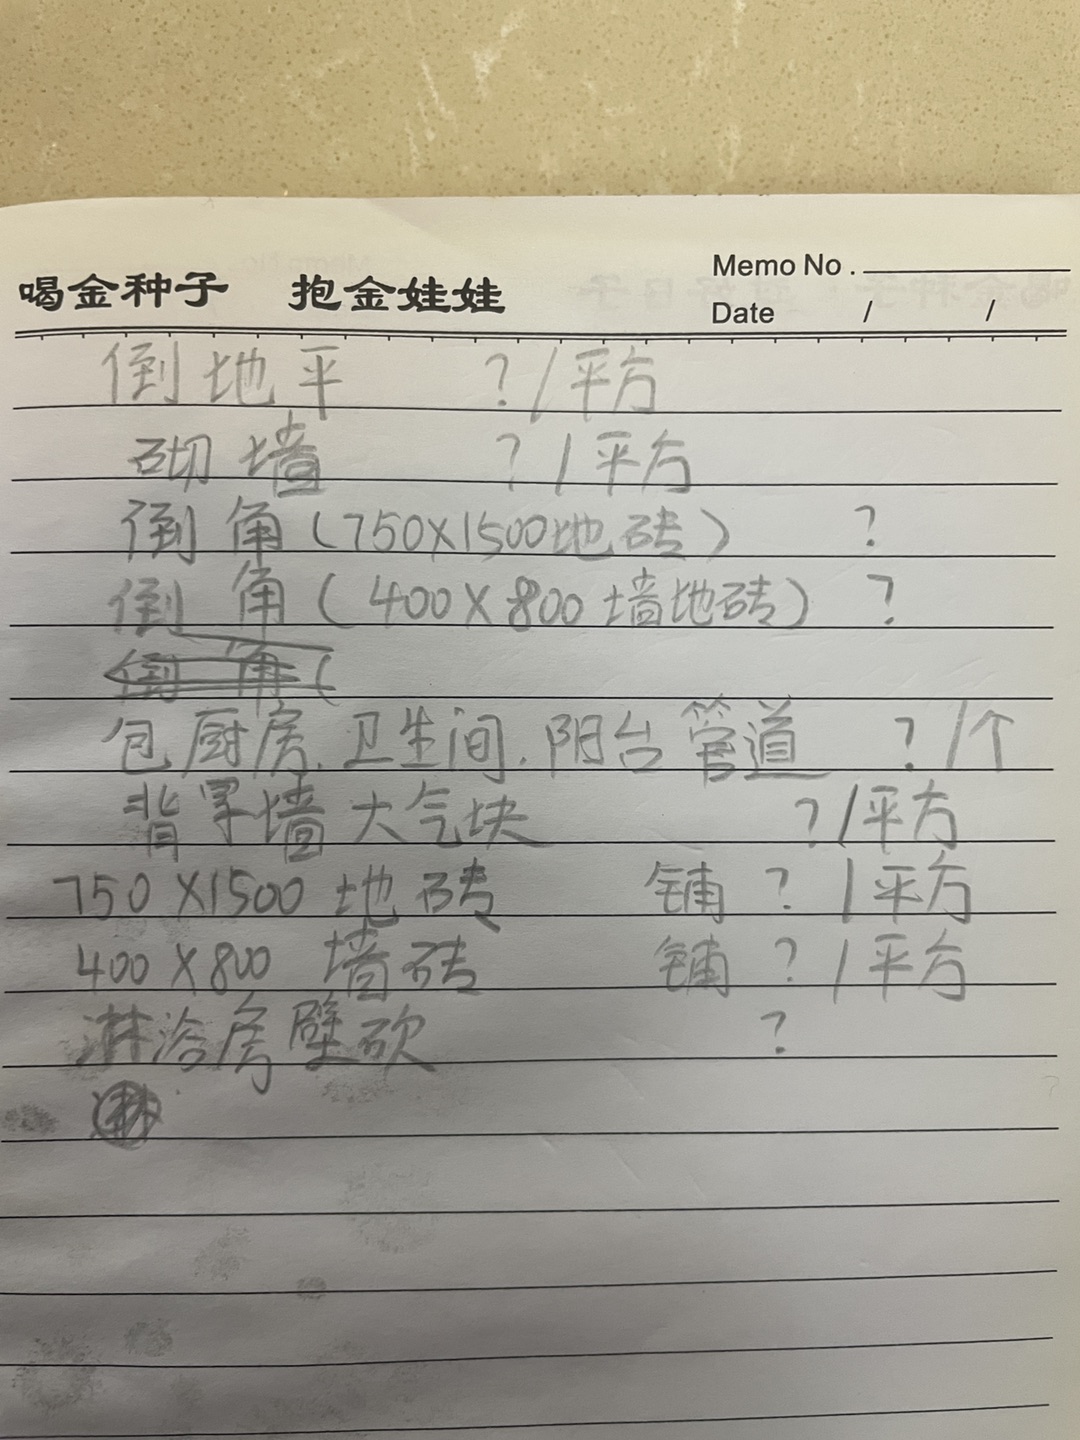 喝金种子 抱金娃娃 Memo No.
Date / /
倒地平 ?/平方
砌墙 ?/平方
倒角(750X1500地砖) ?
倒角(400X800墙地砖) ?
倒角(
包厨房.卫生间.阳台管道 ?/个
背景墙大气块 ?/平方
750X1500地砖 铺?/平方
400X800墙砖 铺?/平方
淋浴房壁砍 ?